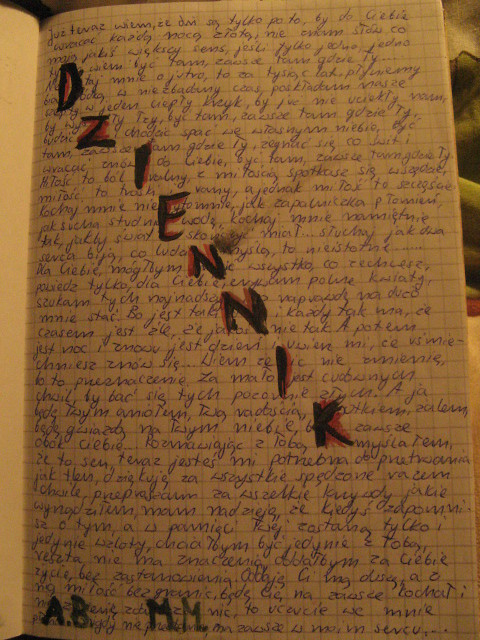 już teraz wiem, że dni są tylko po to, by do Ciebie
wracać każdą nocą złotą, nie znam słów co
mają jakiś większy sens, jeśli tylko jedno, jedno
wiem być tam, zawsze tam gdzie Ty...
mnie o jutro, to za tysiąc lat, płyniemy
łodzią, w niezbadany czas, poskładam nasze
w jeden ciepły krzyk, by już nie uciekły nam,
by Łzy, być tam, zawsze tam gdzie Ty,
budzić chodzić spać we własnym niebie, być
tam, gdzie Ty, żegnać się co świt i
wracać znów do Ciebie, być tam, zawsze tam gdzie Ty.
Miłość to ból z miłością spotkasz się wszędzie,
miłość, to troski a jednak miłość to szczęście
Kochaj mnie jak zapalniczka płomień,
jak sucha studnia wodę, kochaj mnie namiętnie
tak, jakby świat skończyć miał... słuchaj jak dwa
serca biją, co ludzie myślą, to nieistotne.....
Dla Ciebie, mógłbym wszystko, co zechcesz,
powiedz tylko, dla Ciebie, polne kwiaty,
szukam tych naprawdę na dużo
mnie stać. Bo jest tak i każdy tak ma, że
czasem jest źle, że nie tak A potem
jest noc i znowu jest dzień i uwierz mi, że uśmie-
chniesz znów się... Wiem że nic nie zmienię,
bo to przeznaczenie, za mało jest cudownych
chwil, by bać się tych A ja
będę Twym aniołem, Twą radością, smutkiem, żalem,
będę gwiazdą na Twym niebie, zawsze
obok ciebie. Poznawając z Tobą myślałem,
że to sen, teraz jesteś mi potrzebna do przetrwania
jak tlen, dziękuję za wszystkie spędzone razem
chwile, przepraszam za wszelkie krzywdy jakie
wyrządziłem, mam nadzieję, że kiedyś zapomni-
sz o tym, a w pamięci Twej zostaną tylko i
jedynie wzloty, chciałbym być jedynie z Tobą,
reszta nie ma znaczenia, oddałbym za Ciebie
życie, bez zastanowienia Oddaję Ci mą duszę, a z
nią miłość bez granic, będę Cię na zawsze kochał i
nie nic, to uczucie we mnie
nigdy nie ma zawsze w moim sercu....
DZIENNIK
A.B. M.M.